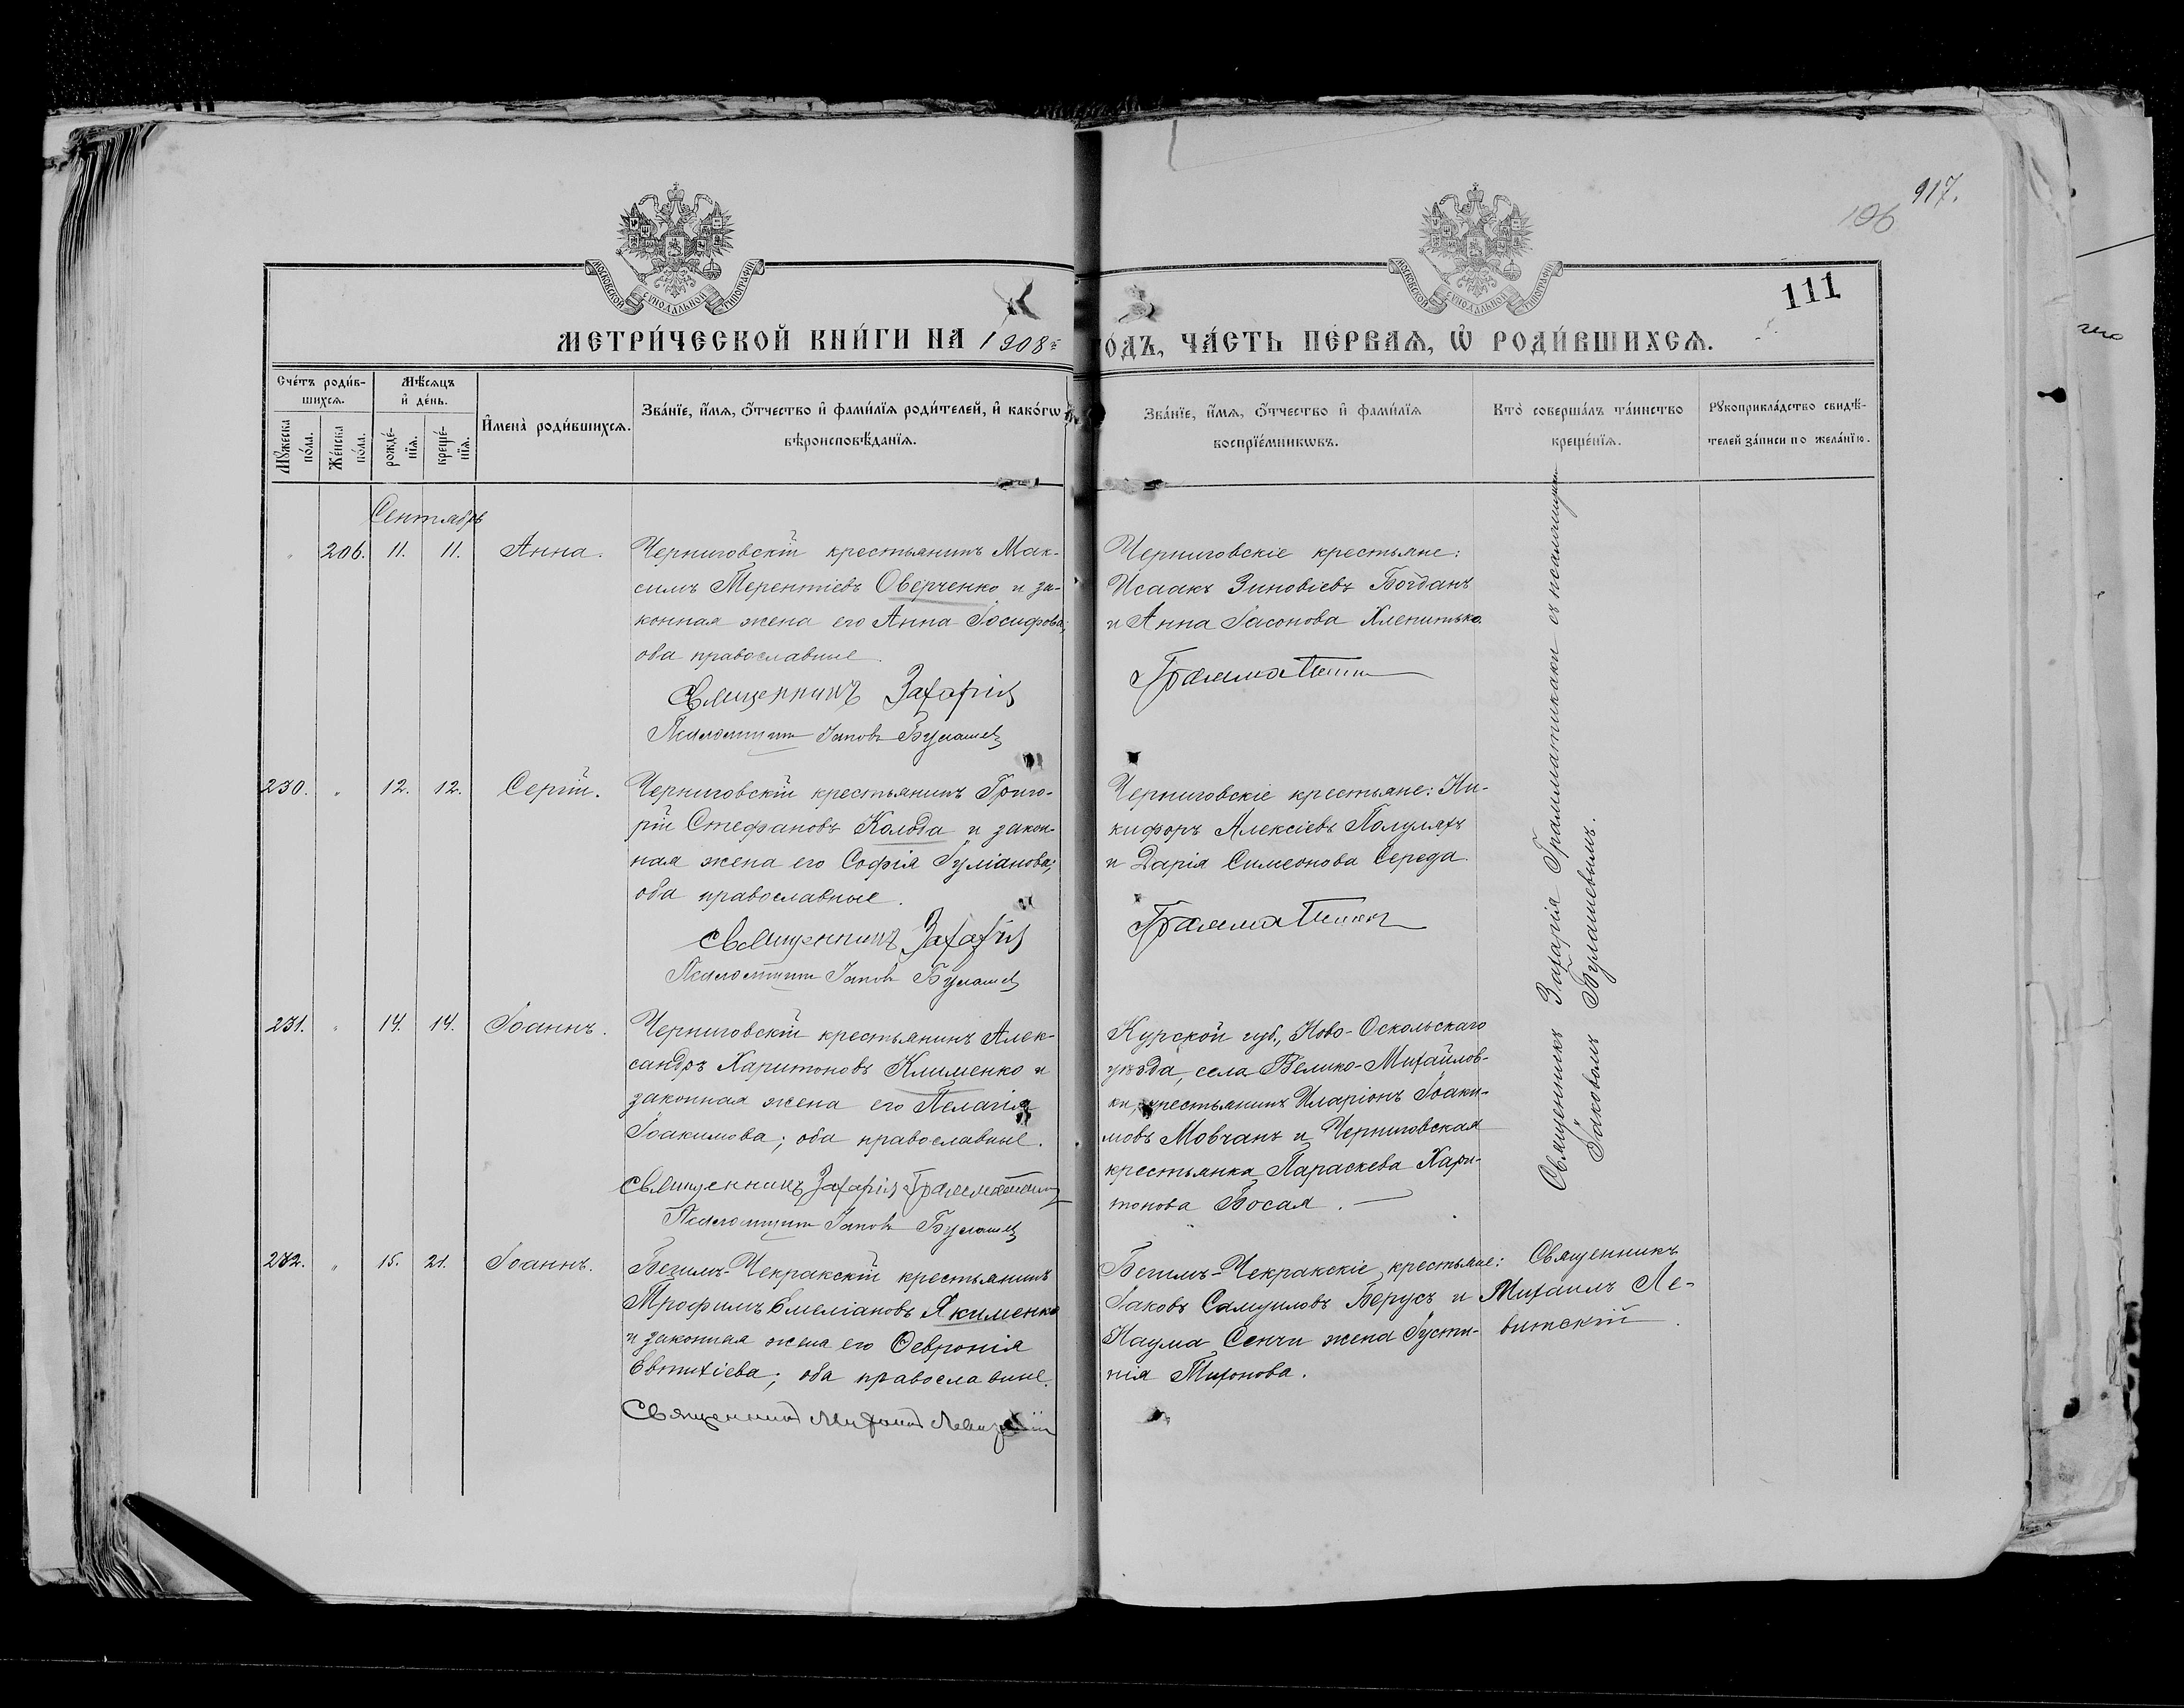 917.
106
111
МОСКОВСКОЙ СѴНОДАЛЬНОЙ ТИПОГРАФІИ
МОСКОВСКОЙ СѴНОДАЛЬНОЙ ТИПОГРАФІИ
МЕТРИ́ЧЕСКОЙ КНИ́ГИ НА 1908й
О́ДЪ, ЧА́СТЬ ПЕ́РВАѦ, Ѡ҆ РОДИ́ВШИХСѦ.
Сче́тъ роди́вшихсѧ.
Мꙋ́жеска по́ла.
Же́нска по́ла.
Мѣ́сѧцъ и҆ де́нь.
рожде́нїѧ.
креще́нїѧ.
И҆мена̀ роди́вшихсѧ.
Зва́нїе, и҆́мѧ, ѻ҆́тчество и҆ фами́лїѧ роди́телей, и҆ како́гѡ
вѣроисповѣ́данїѧ.
Зва́нїе, и҆́мѧ, ѻ҆́тчество и҆ фами́лїѧ
воспрїе́мникѡвъ.
Кто̀ соверша́лъ та́инство
креще́нїѧ.
Рꙋкоприкла́дство свидѣ́-
телей за́писи по жела́нїю.
Сентябрь
" 206. 11. 11. Анна.
Черниговскій крестьянинъ Мак-
симъ Терентіевъ Оверченко и за-
конная жена его Анна Іосифова;
оба православные.
Священникъ Захарія
Псаломщикъ Іаковъ Булашев
Черниговскіе крестьяне:
Исаакъ Зиновіевъ Богданъ
и Анна Іасонова Хленитько.
Грамматикин
230. " 12. 12. Сергій.
Черниговскій крестьянинъ Григо-
рій Стефановъ Колода и закон-
ная жена его Софія Іуліанова;
оба православные.
Священникъ Захарія
Псаломщикъ Іаковъ Булашев
Черниговскіе крестьяне: Ни-
кифоръ Алексіевъ Полуляхъ
и Дарія Симеонова Середа.
Грамматикин
231. " 14. 14. Іоаннъ.
Черниговскій крестьянинъ Алек-
сандръ Харитоновъ Клименко и
законная жена его Пелагія
Іоакимова; оба православные.
Священникъ Захарія Грамматикин
Псаломщикъ Іаковъ Булашев
Курской губ., Ново-Оскольскаго
уѣзда, села Велико-Михайлов-
ки, крестьянинъ Иларіонъ Іоаки-
мовъ Мовчанъ и Черниговская
крестьянка Параскева Хари-
тонова Босая.
Священникъ Захарія Грамматикинъ съ псаломщикомъ
Іаковомъ Булашевымъ.
232. " 15. 21. Іоаннъ.
Бегимъ-Чекракскій крестьянинъ
Трофимъ Емеліановъ Якименко
и законная жена его Ѳевронія
Евтихіева; оба православные.
Священникъ Михаилъ Левитскій
Бегимъ-Чекракскіе крестьяне:
Іаковъ Самуиловъ Берусъ и
Наума Сенчи жена Іусти-
нія Тихонова.
Священникъ
Михаилъ Ле-
витскій.